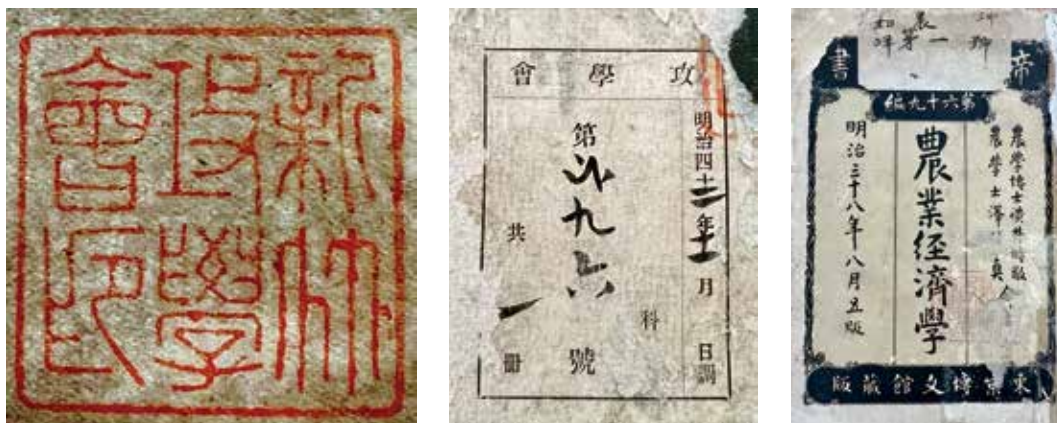 新
學
會印
攻學會
明治四十三年十一月 日調
科
第 九六號
共一冊
帝
書
第六十九編
農學博士横井時敬
農學士澤村真
農業经濟學
明治三十八年八月五版
東京博文館藏版